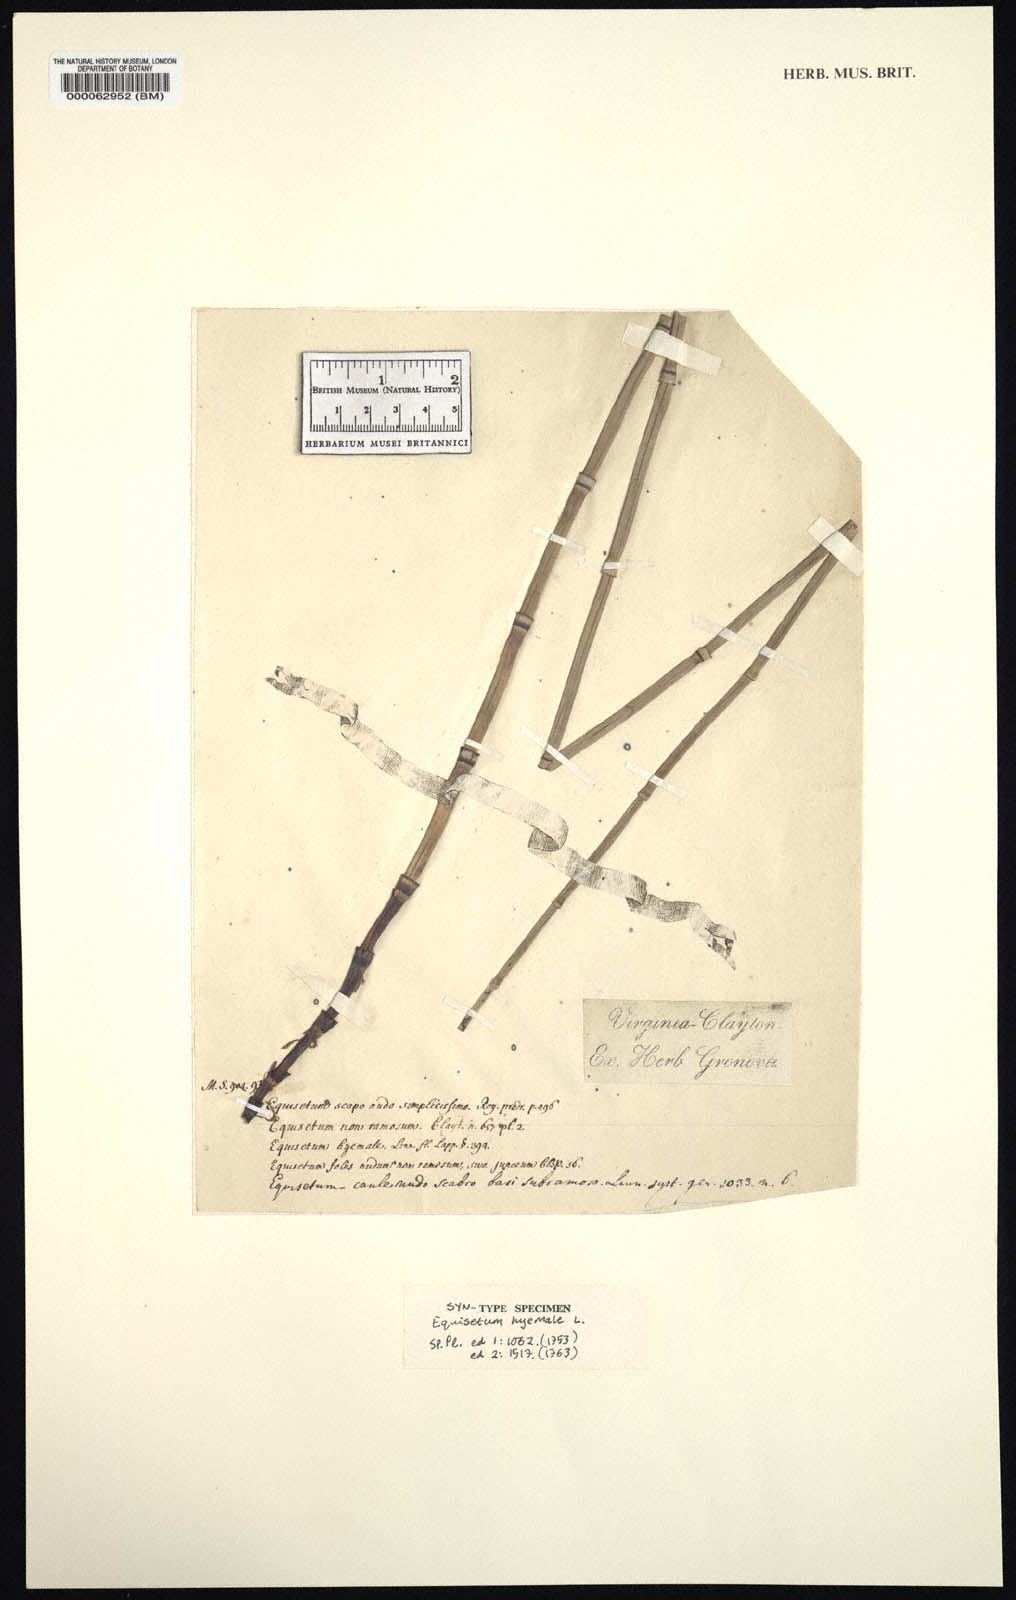 THE NATURAL HISTORY MUSEUM, LONDON
DEPARTMENT OF BOTANY
000062952 (BM)
HERB. MUS. BRIT.
1 2
BRITISH MUSEUM (NATURAL HISTORY)
1 2 3 4 5
HERBARIUM MUSEI BRITANNICI
Virginia-Clayton.
Ex. Herb Gronovii
M. S.
Equisetum scapo nudo simplicissimo. Roy. prodr. p. 496
Equisetum non ramosum. Clayt. n. 657 pl. 2.
Equisetum hyemale. Linn. fl. Lapp. §. 394.
Equisetum foliis nudum non ramosum, sive junceum CBp. 16.
Equisetum caule nudo scabro basi subramoso. Linn. syst. gen. 1033. n. 6.
SYN-TYPE SPECIMEN
Equisetum hyemale L.
Sp. Pl. ed 1: 1062. (1753)
ed 2: 1517. (1763)